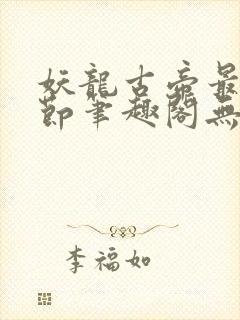 妖龍古帝最
節筆趣閣無
李福如